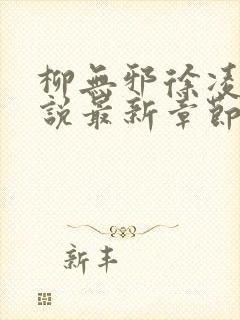 柳無邪徐凌
說最新章節
新丰